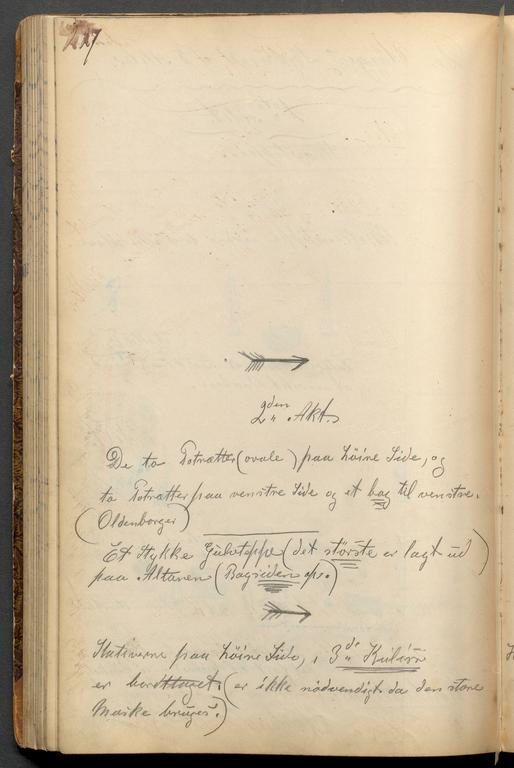 117
2den Akt.
De to Potrætter (ovale) paa höire Side, og
to Potrætter paa venstre Side og et bag til venstre.
(Oldenborger)
Et Stykke Gulvteppe (det största er lagt ud)
paa Altanen (Bagsiden op.)
Stativerne paa höire Side, i 3de Kulisse
er borttaget. (er ikke nödvendigt da den store
Maske bruges.)